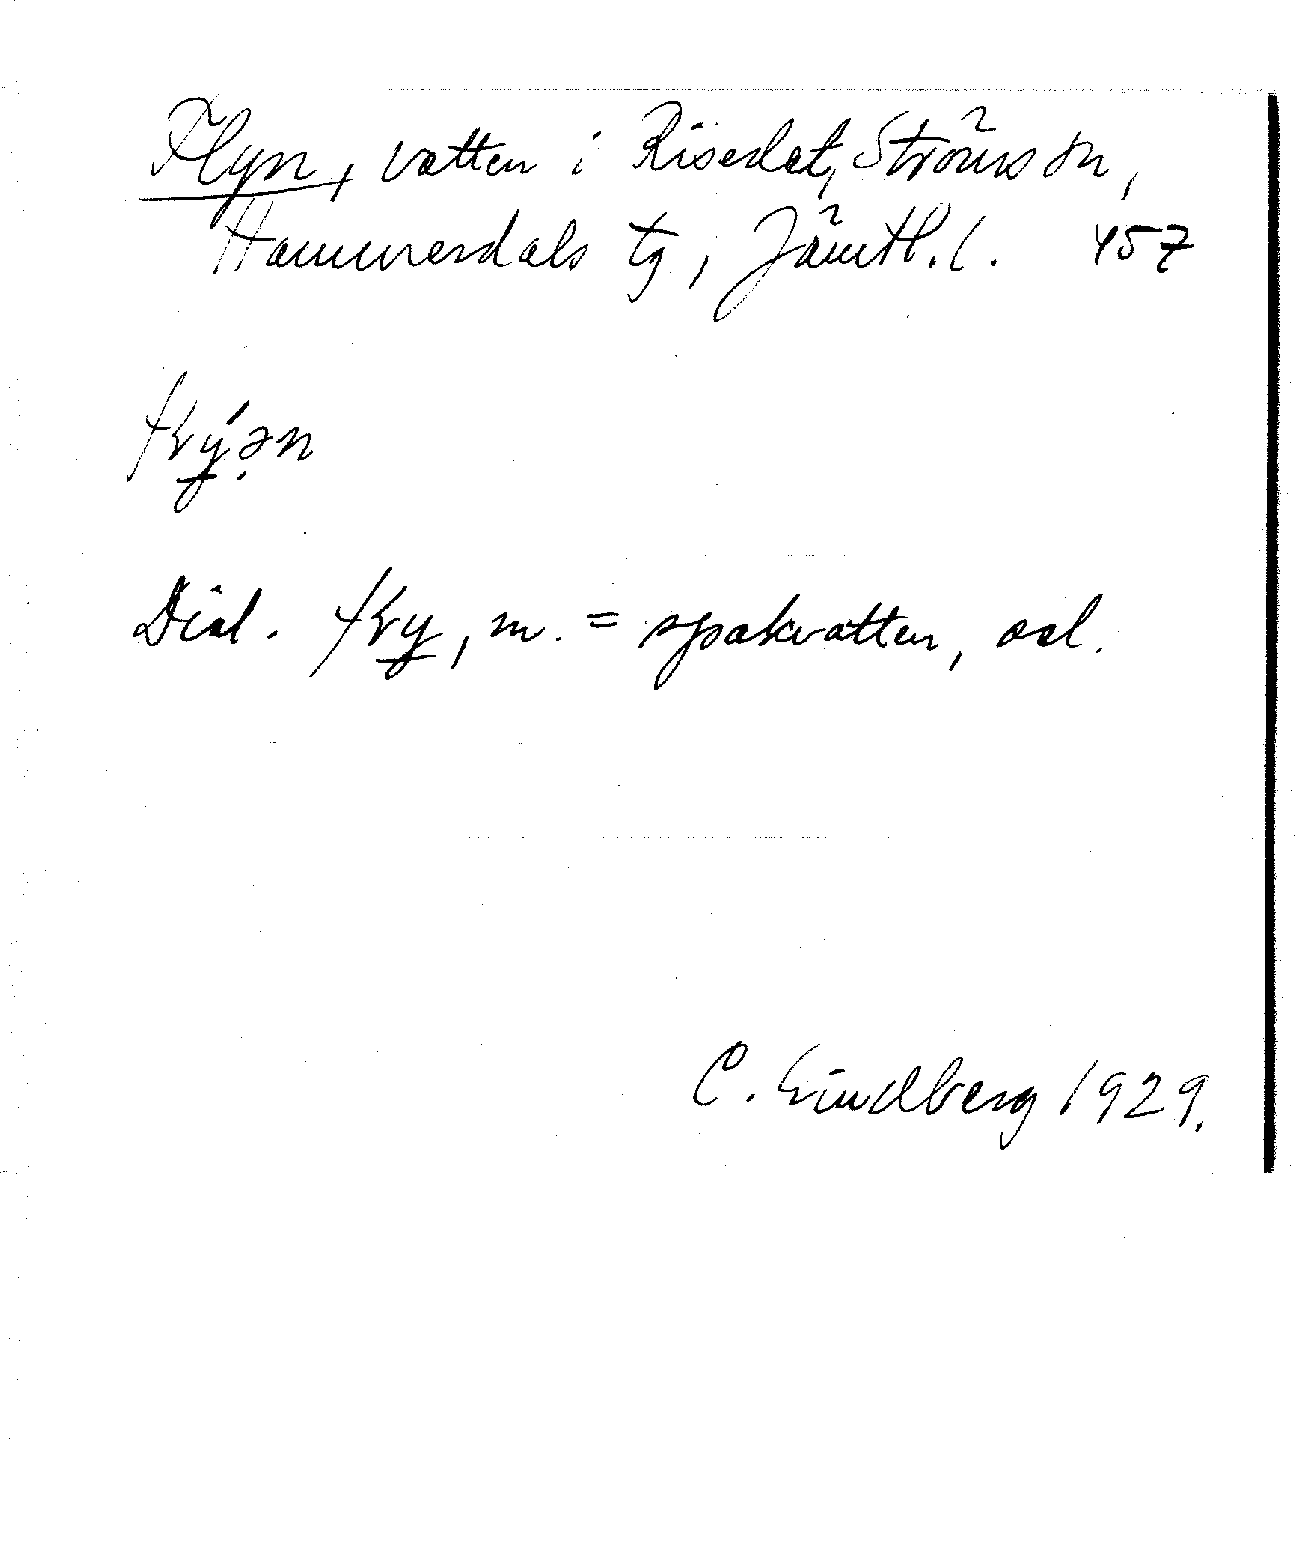 Flyn, vatten i Risedet, Ströms sn,
Hammerdals tg, Jämtl. l. 457
flý̠ən
Dial. fly̠, m. = spakvatten, sel.
C. Lindberg 1929.